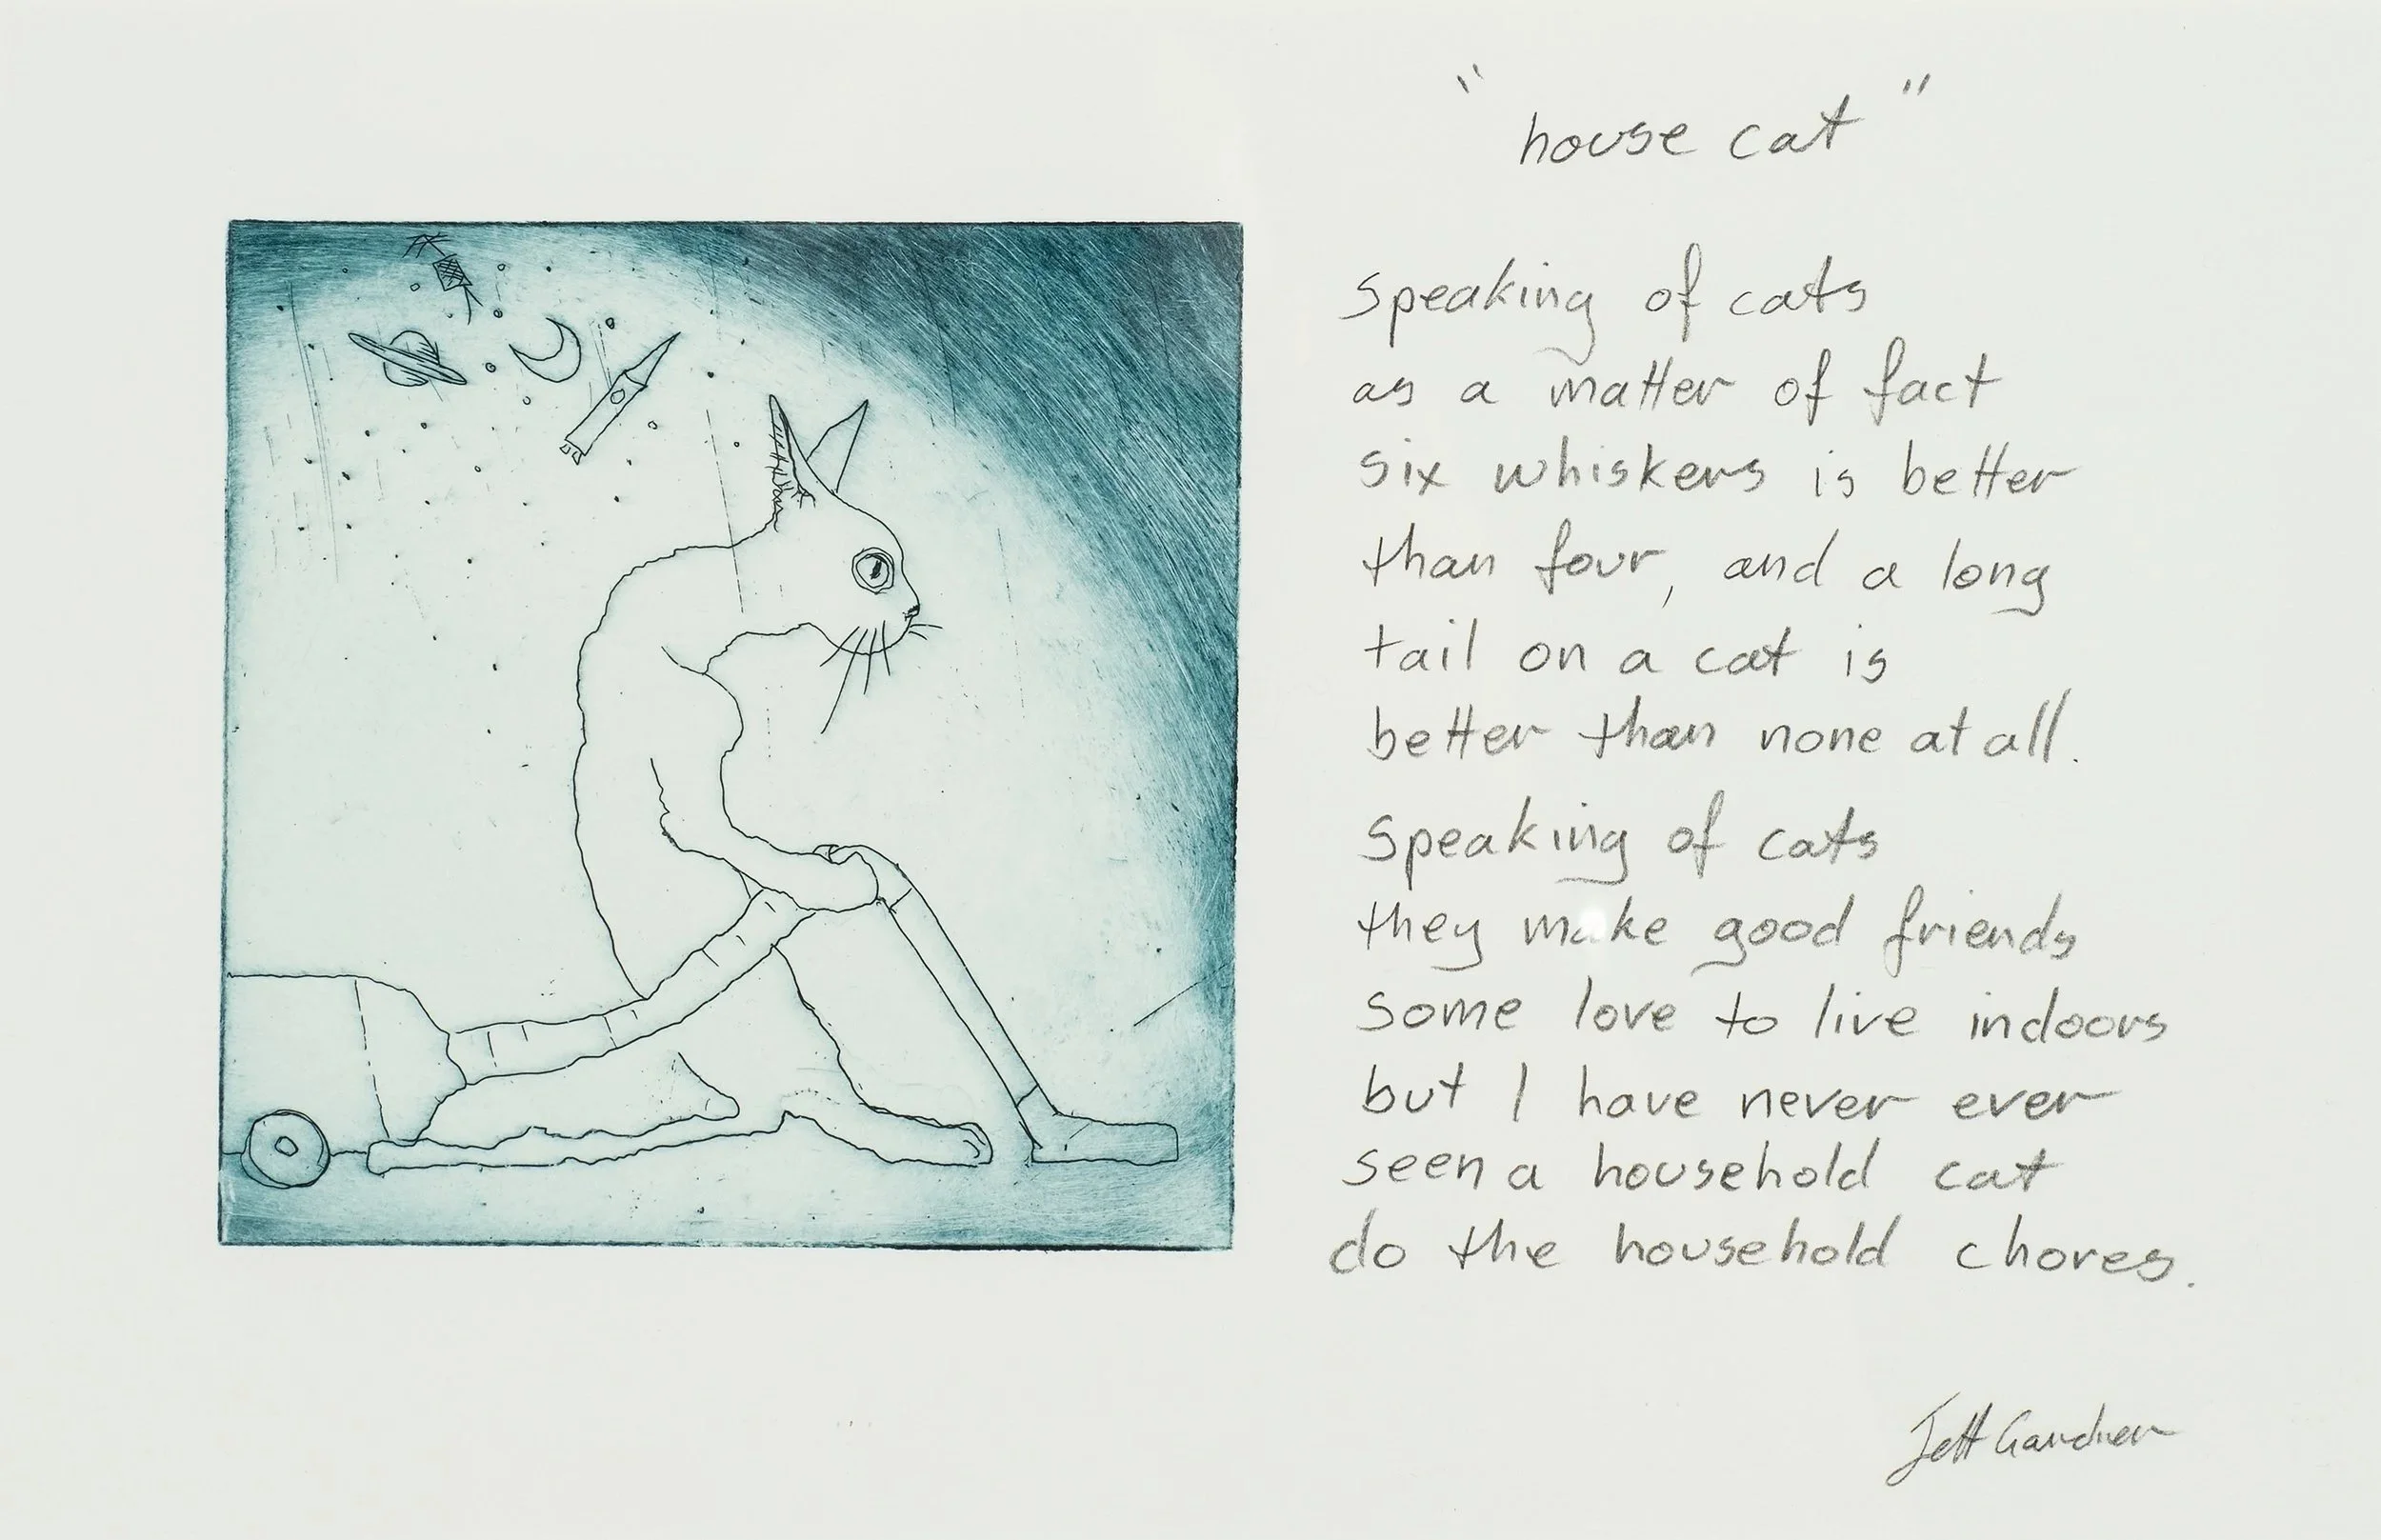 "house cat"
speaking of cats
as a matter of fact
six whiskers is better
than four, and a long
tail on a cat is
better than none at all.
speaking of cats
they make good friends
some love to live indoors
but I have never ever
seen a household cat
do the household chores.
Jeff Gardner